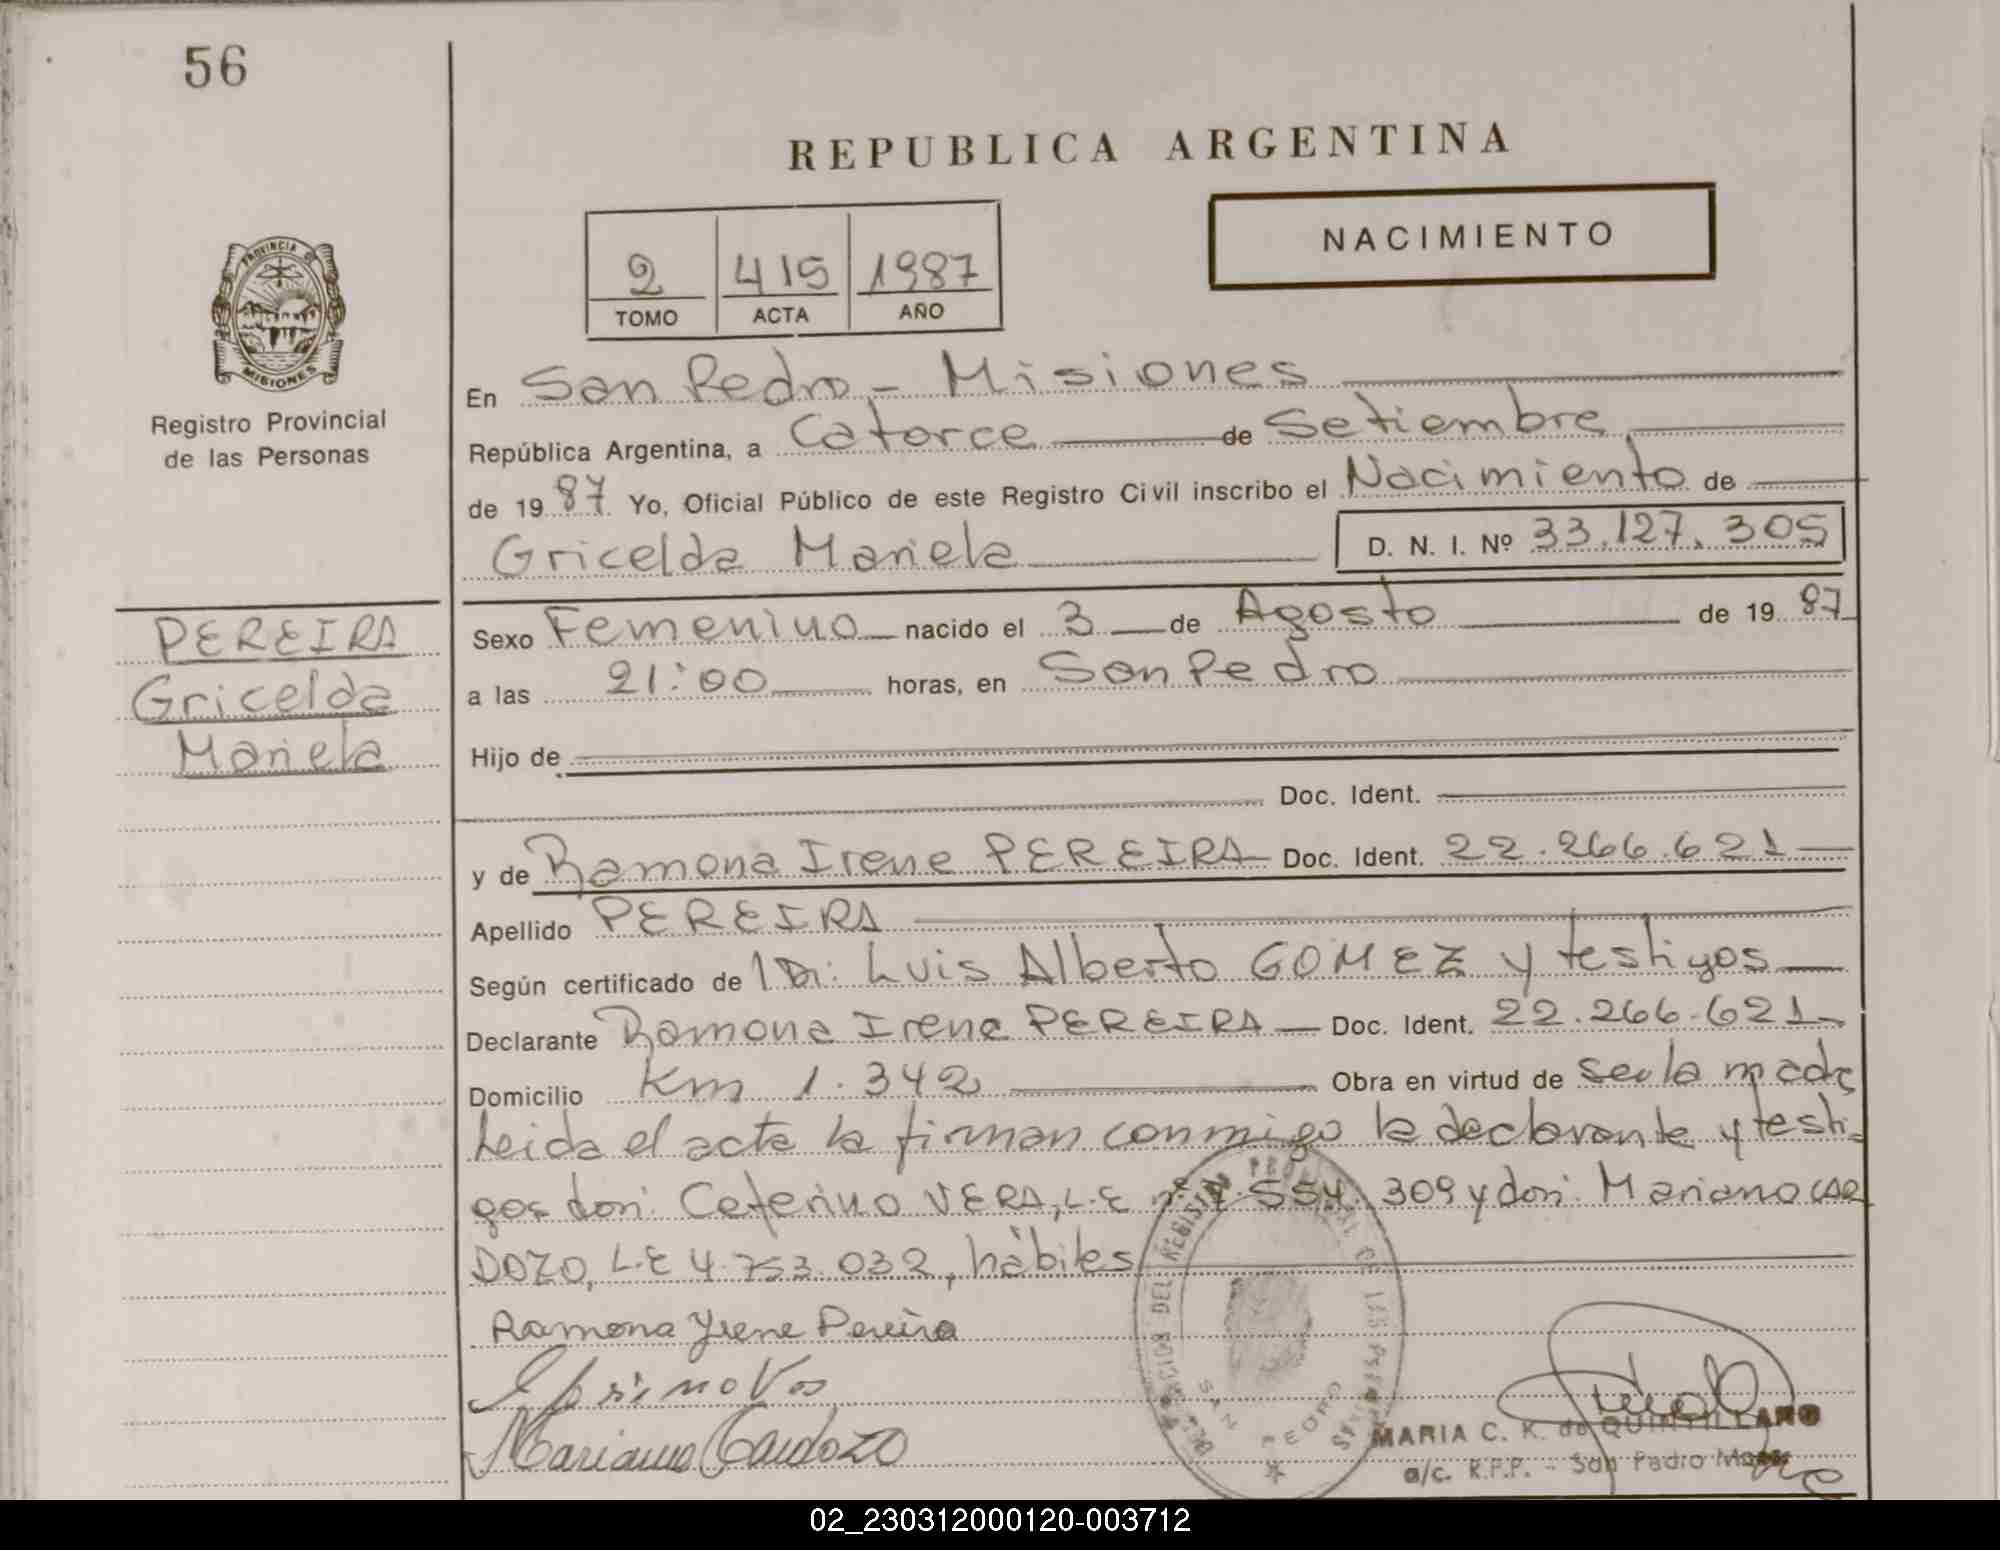 56
REPUBLICA ARGENTINA
NACIMIENTO
2 415 1987
TOMO ACTA AÑO
PROVINCIA DE MISIONES
Registro Provincial
de las Personas
En San Pedro - Misiones
República Argentina, a Catorce de Setiembre
de 1987 Yo, Oficial Público de este Registro Civil inscribo el Nacimiento de
Gricelda Mariela D. N. I. Nº 33.127.305
PEREIRA
Gricelda
Mariela
Sexo Femenino nacido el 3 de Agosto de 1987
a las 21:00 horas, en San Pedro
Hijo de
Doc. Ident.
y de Ramona Irene PEREIRA Doc. Ident. 22.266.621
Apellido PEREIRA
Según certificado de Dr: Luis Alberto GOMEZ y testigos
Declarante Ramona Irene PEREIRA Doc. Ident. 22.266.621
Domicilio Km 1.342 Obra en virtud de ser la madre
Leida el acta la firman conmigo la declarante y testi-
gos don: Ceferino VERA, L.E nº 7.554.309 y don: Mariano CAR
DOZO, L.E 4.753.032, hábiles
Ramona Yrene Pereira
Mariano Cardozo
SAN PEDRO
MARIA C. K. de QUINTILLANO
a/c. R.P.P. - San Pedro Mnes
02_230312000120-003712